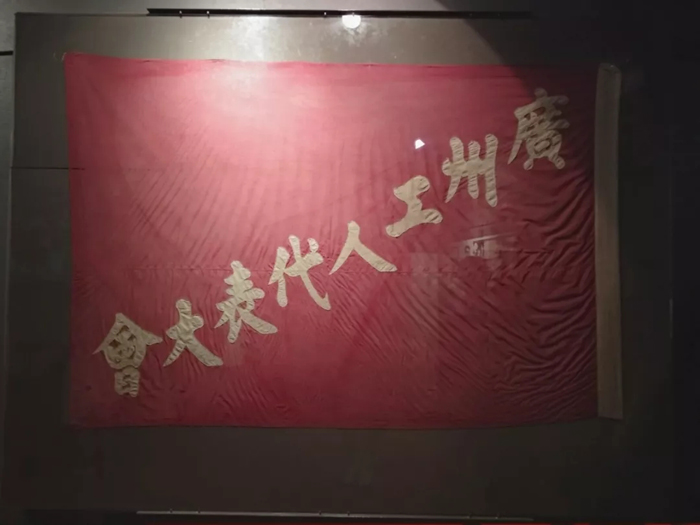 廣州工人代表大會